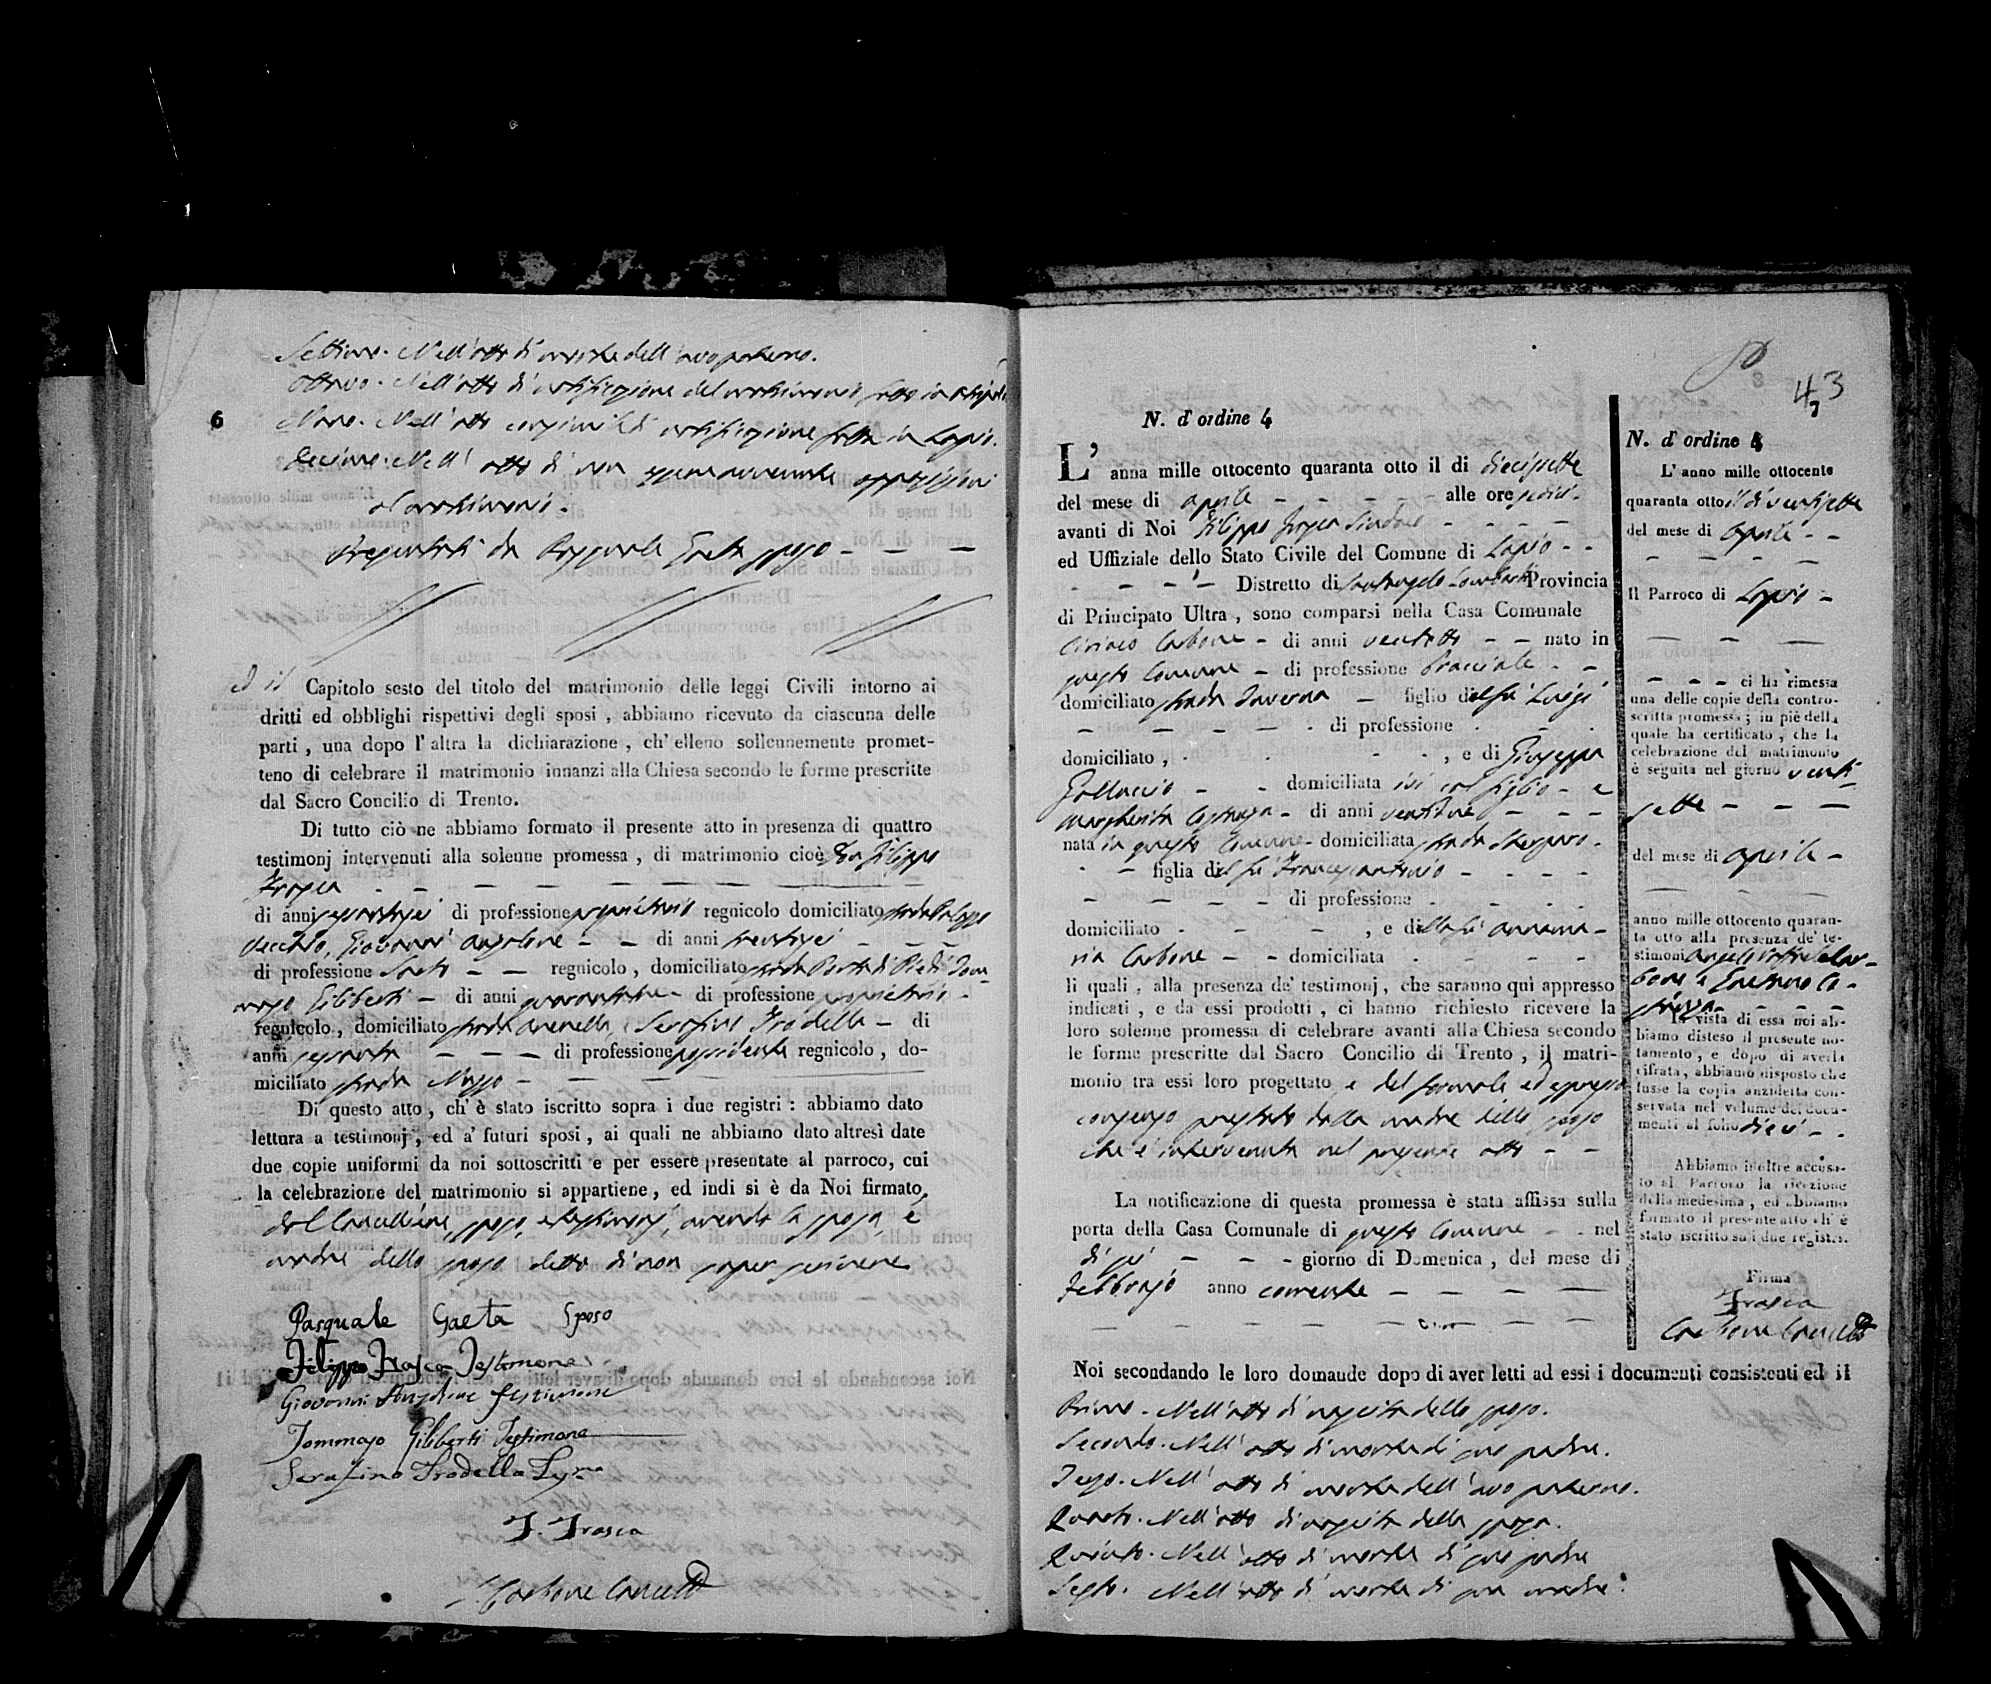 6
Settimo. Nell'atto di morte dell'avo paterno.
Ottavo. Nell'atto di notificazione del matrimonio fatto in
Nono. Nell'atto di notificazione fatta in Lapio.
Decimo. Nell'atto di non essere avvenute opposizioni
al matrimonio.
Presentati da Pasquale Gaeta sposo - - -
ed il Capitolo sesto del titolo del matrimonio delle leggi Civili intorno ai
dritti ed obblighi rispettivi degli sposi, abbiamo ricevuto da ciascuna delle
parti, una dopo l'altra la dichiarazione, ch'elleno sollennemente promet-
teno di celebrare il matrimonio innanzi alla Chiesa secondo le forme prescritte
dal Sacro Concilio di Trento.
Di tutto ciò ne abbiamo formato il presente atto in presenza di quattro
testimonj intervenuti alla solenne promessa, di matrimonio cioè Don Filippo
Frasca - - - - - - - -
di anni sessantasei di professione proprietario regnicolo domiciliato strada Palazzo
Vecchio, Giovanni Anzalone - - di anni trentasei - - -
di professione Sarto - - regnicolo, domiciliato strada Porta di Piedi Tom-
maso Giliberti - di anni di professione proprietario -
regnicolo, domiciliato strada Serafino Trodella - di
anni sessanta - - - di professione possidente regnicolo, do-
miciliato strada - - -
Di questo atto, ch'è stato iscritto sopra i due registri: abbiamo dato
lettura a testimonj, ed a' futuri sposi, ai quali ne abbiamo dato altresì date
due copie uniformi da noi sottoscritti e per essere presentate al parroco, cui
la celebrazione del matrimonio si appartiene, ed indi si è da Noi firmato,
dal Cancelliere, sposo, e testimonj, avendo la sposa, e
madre dello sposo detto di non saper scrivere
Pasquale Gaeta Sposo
Filippo Frasca Testimone
Giovanni Anzalone testimone
Tommaso Giliberti Testimone
Serafino Trodella
F. Frasca
Carbone
43
7
N. d'ordine 4
L'anna mille ottocento quaranta otto il di diecisette
del mese di aprile - - - - alle ore sedici -
avanti di Noi Filippo Frasca Sindaco - - - -
ed Uffiziale dello Stato Civile del Comune di Lapio - -
- - - - Distretto di Santangelo Lombardi Provincia
di Principato Ultra, sono comparsi nella Casa Comunale
Ciriaco Carbone - di anni ventotto - - nato in
questo Comune - di professione Bracciale - -
domiciliato strada Taverna - figlio del fu Luigi
- - - - - di professione - - -
domiciliato, - - - -, e di Giuseppa
- - domiciliata ivi col figlio - e
Margherita - di anni - - -
nata in questo Comune - domiciliata strada
- - figlia del fu Francescantonio - - - -
- - - - di professione - - - -
domiciliato - - -, e della fu Annama-
ria Carbone - - domiciliata - - - -
li quali, alla presenza de' testimonj, che saranno qui appresso
indicati, e da essi prodotti, ci hanno richiesto ricevere la
loro solenne promessa di celebrare avanti alla Chiesa secondo
le forme prescritte dal Sacro Concilio di Trento, il matri-
monio tra essi loro progettato e del formale ed espresso
consenso prestato dalla madre dello sposo
che è intervenuta nel presente atto - -
La notificazione di questa promessa è stata affissa sulla
porta della Casa Comunale di questo Comune - - nel
dì sei - - - giorno di Domenica, del mese di
Febbrajo anno corrente - - - -
Noi secondando le loro domande dopo di aver letti ad essi i documenti consistenti ed il
Primo. Nell'atto di nascita dello sposo.
Secondo. Nell'atto di morte di suo padre.
Terzo. Nell'atto di morte dell'avo paterno.
Quarto. Nell'atto di nascita della sposa.
Quinto. Nell'atto di morte di suo padre
Sesto. Nell'atto di morte di sua madre.
N. d'ordine 4
L'anno mille ottocento
quaranta otto il dì ventisette
del mese di aprile - -
Il Parroco di Lapio -
- - - ci ha rimessa
una delle copie della contro-
scritta promessa; in piè della
quale ha certificato, che la
celebrazione del matrimonio
è seguita nel giorno venti
sette - - -
del mese di aprile -
anno mille ottocento quaran-
ta otto alla presenza de' te-
stimoni Car-
bone e Gaetano
In vista di essa noi ab-
biamo disteso il presente no-
tamento, e dopo di averla
cifrata, abbiamo disposto che
fusse la copia anzidetta con-
servata nel volume dei docu-
menti al folio dieci - -
Abbiamo inoltre accusa-
to al Parroco la ricezione
della medesima, ed abbiamo
formato il presente atto ch'è
stato iscritto su i due registri.
Firma
Frasca
Carbone